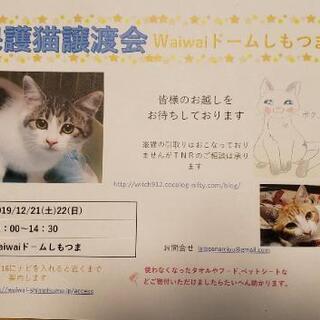 護猫譲渡会 Waiwaiドームしもつま
皆様のお越しを
お待ちしております
猫の引取りはおこなっており
ませんがTNRのご相談は承り
ます
http://witch912.cocolog-nifty.com/blog/
019/12/21(土)22(日)
:00～14:30
aiwaiドームしもつま
お問合せ
16にナビを入れると近くまで
使わなくなったタオルやフード、ペットシートな
どご寄付いただけましたらたいへん助かります。